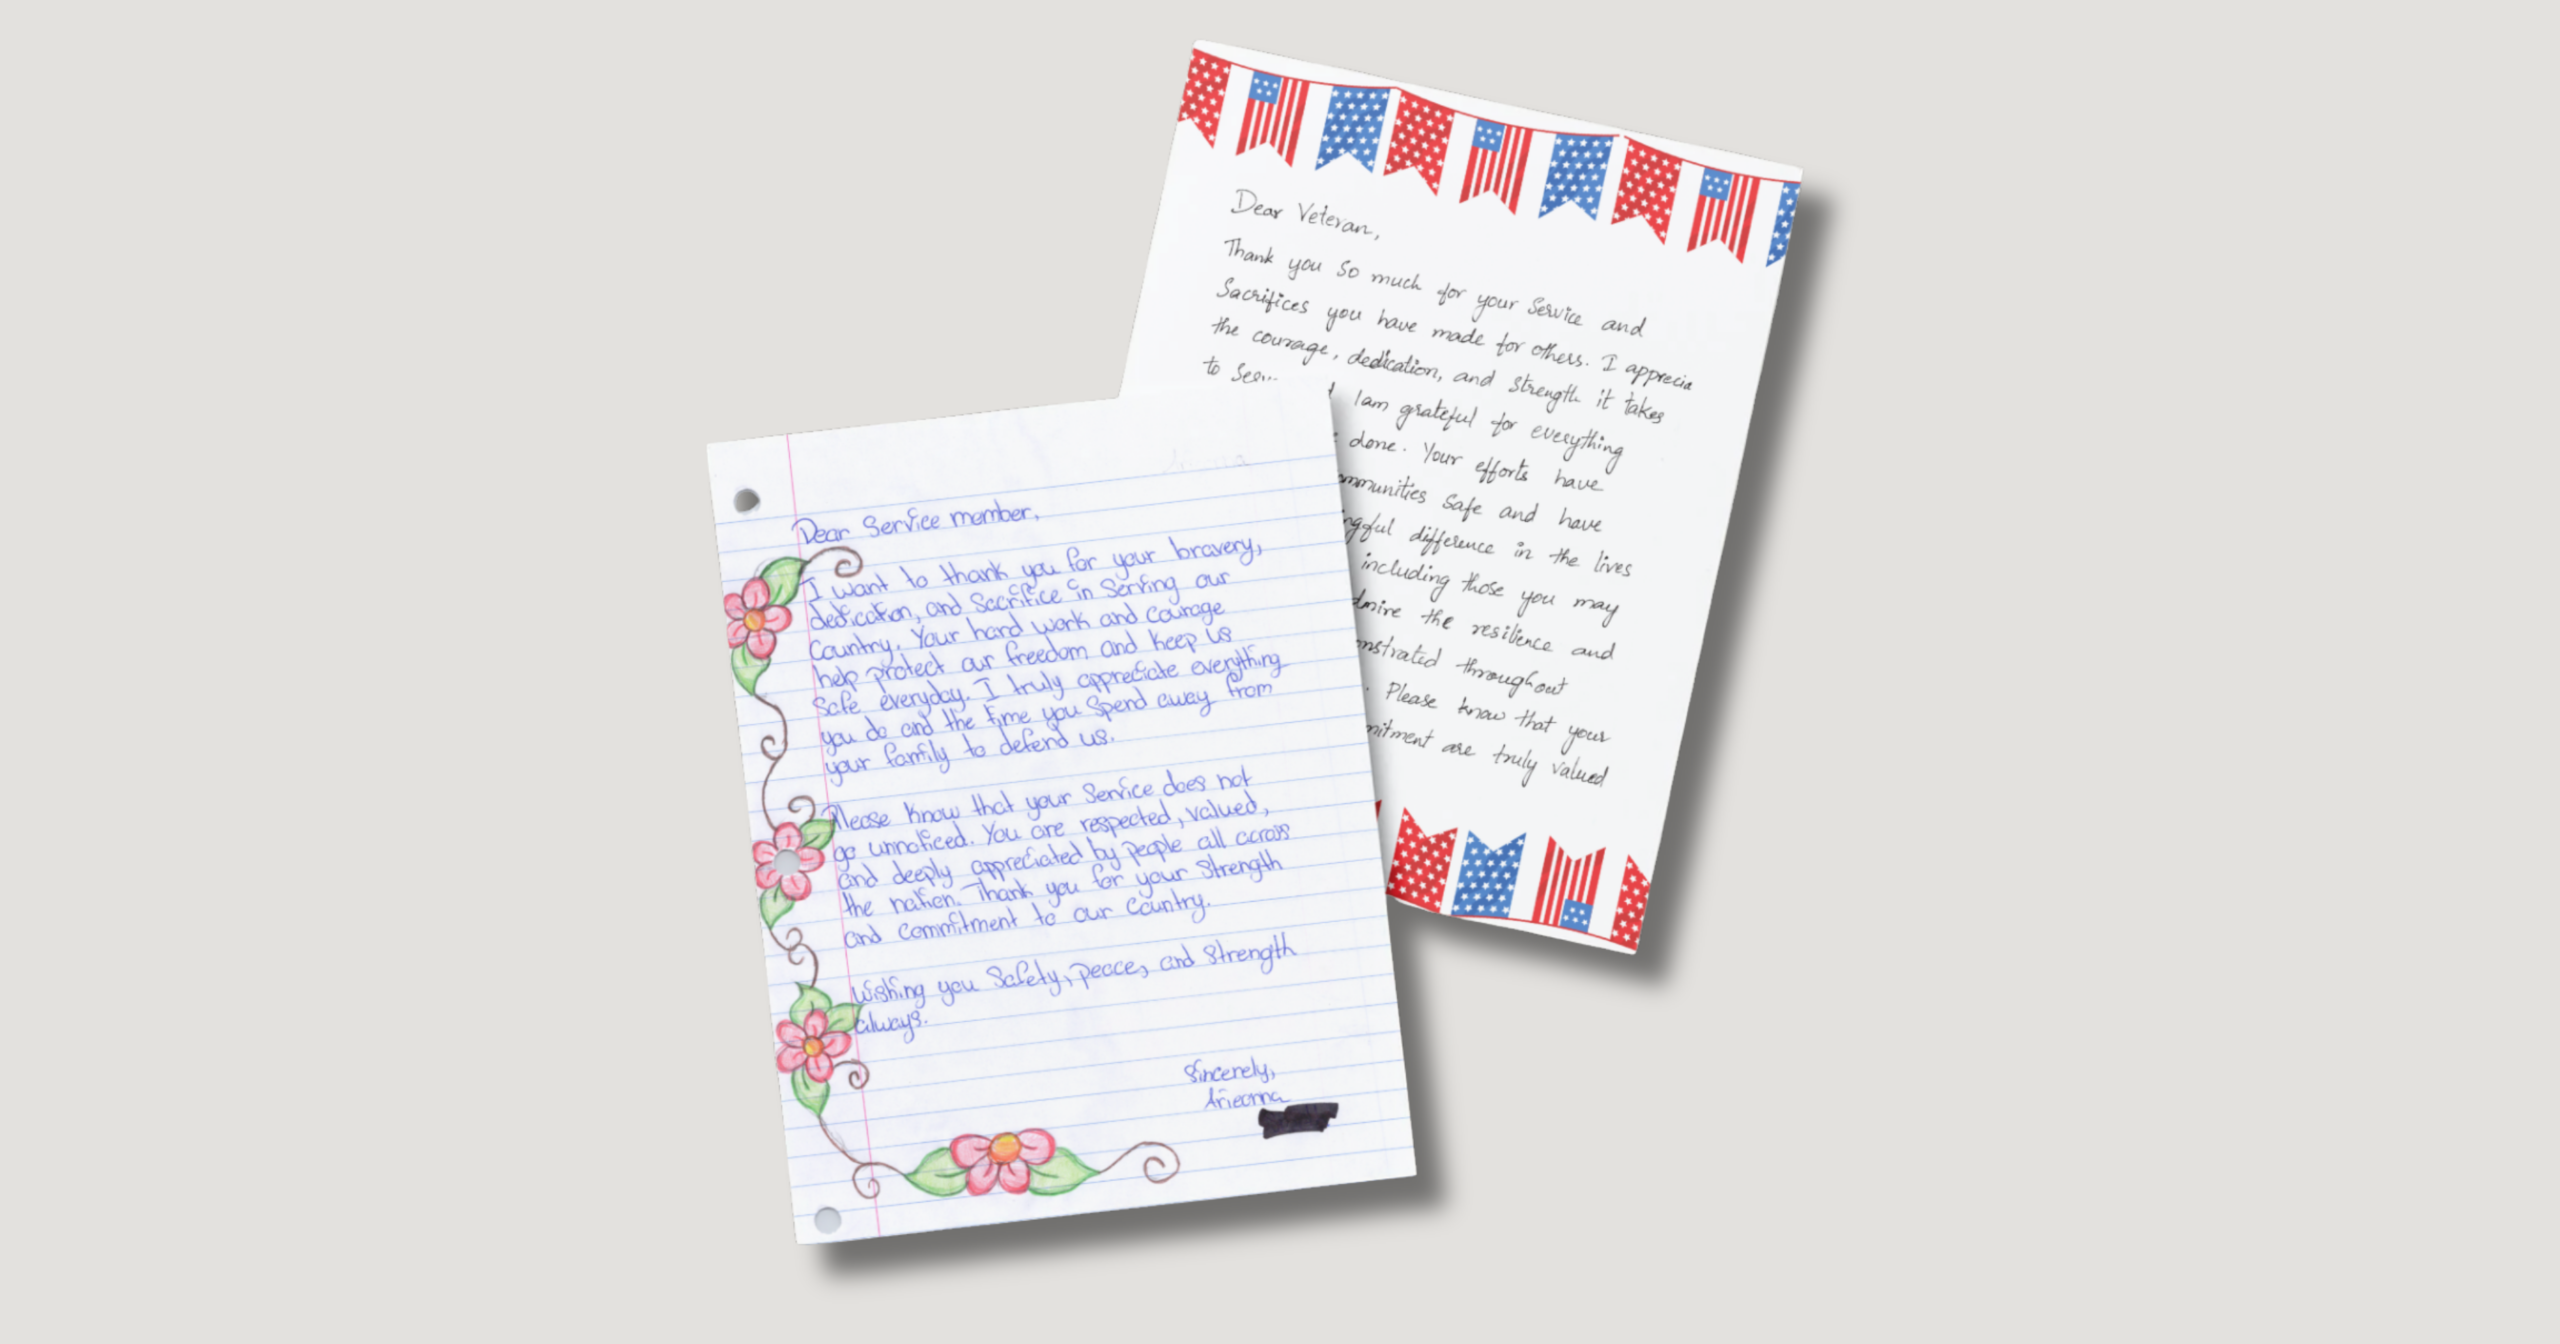 Dear Veteran,
Thank you so much for your Service and
Sacrifices you have made for others. I apprecia
the courage, dedication, and strength it takes
to
I am grateful for everything
done. Your efforts have
mmunities Safe and have
ngful difference in the lives
including those you may
dmire the resilience and
onstrated throughout
. Please know that your
mitment are truly valued
Dear Service member,
I want to thank you for your bravery,
dedication, and Sacrifice in Serving our
Country. Your hard work and courage
help protect our freedom and keep us
Safe everyday. I truly appreciate everything
you do and the time you Spend away from
your family to defend us.
Please know that your Service does not
go unnoticed. You are respected, valued,
and deeply appreciated by people all across
the nation. Thank you for your Strength
and commitment to our Country.
Wishing you Safety, peace, and Strength
always.
Sincerely,
Arieonna